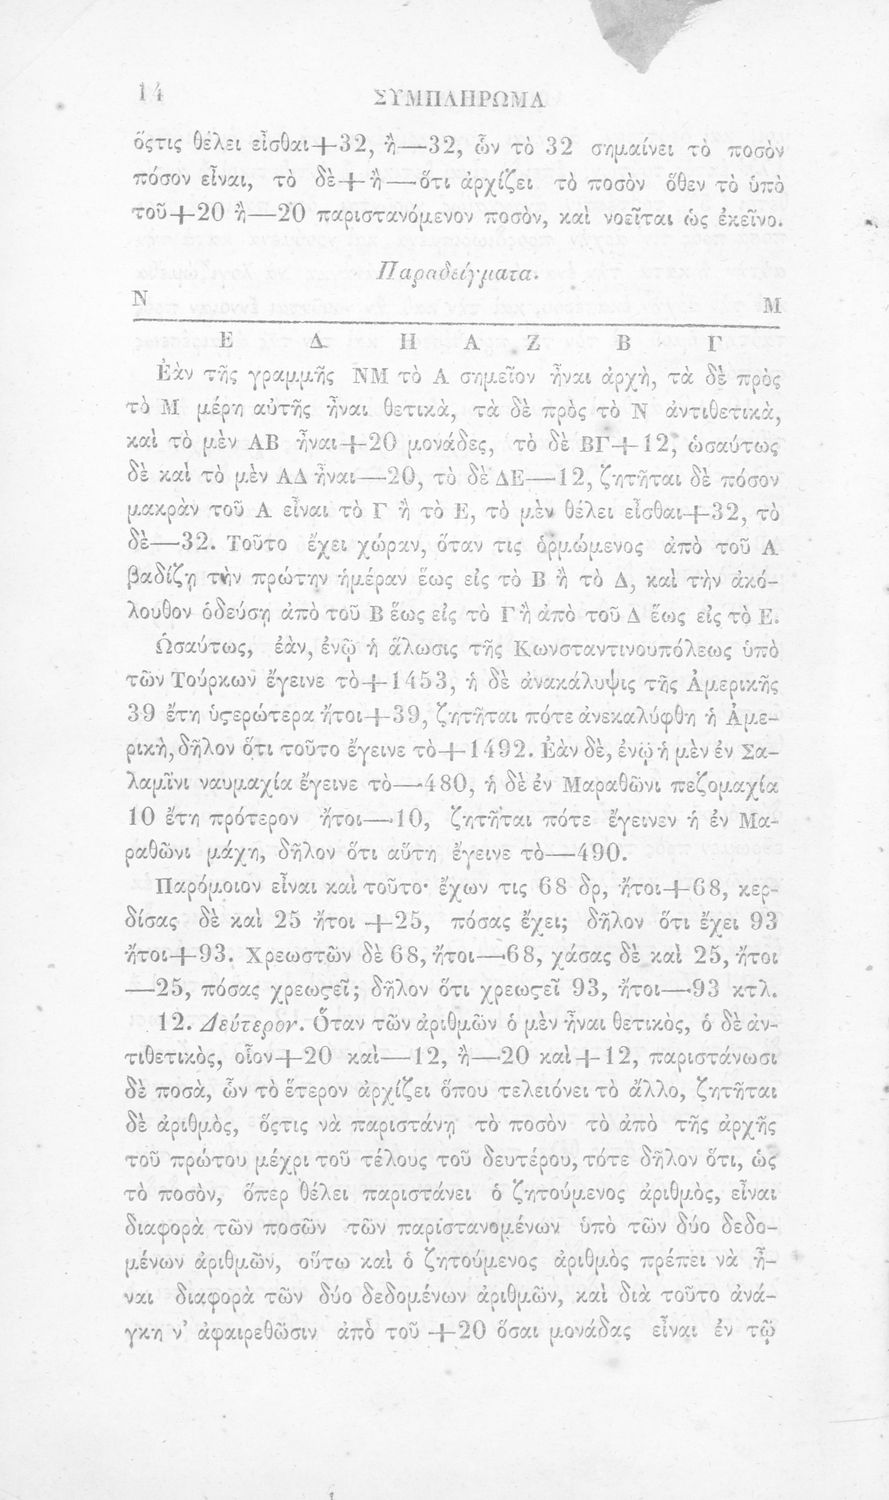 14
ΣΥΜΠΛΗΡΩΜΑ
ὅςτις θέλει εἶσθαι+32, ἢ—32, ὧν τὸ 32 σημαίνει τὸ ποσὸν
πόσον εἶναι, τὸ δὲ+ἢ—ὅτι ἀρχίζει τὸ ποσὸν ὅθεν τὸ ὑπὸ
τοῦ+20 ἢ—20 παριστανόμενον ποσὸν, καὶ νοεῖται ὡς ἐκεῖνο.
Παραδείγματα.
Ν Μ
Ε Δ Η Α Ζ Β Γ
Ἐὰν τῆς γραμμῆς ΝΜ τὸ Α σημεῖον ἦναι ἀρχὴ, τὰ δὲ πρὸς
τὸ Μ μέρη αὐτῆς ἦναι θετικὰ, τὰ δὲ πρὸς τὸ Ν ἀντιθετικὰ,
καὶ τὸ μὲν ΑΒ ἦναι+20 μονάδες, τὸ δὲ ΒΓ+12, ὡσαύτως
δὲ καὶ τὸ μὲν ΑΔ ἦναι—20, τὸ δὲ ΔΕ—12, ζητῆται δὲ πόσον
μακρὰν τοῦ Α εἶναι τὸ Γ ἢ τὸ Ε, τὸ μὲν θέλει εἶσθαι+32, τὸ
δὲ—32. Τοῦτο ἔχει χώραν, ὅταν τις ὁρμώμενος ἀπὸ τοῦ Α
βαδίζῃ τὴν πρώτην ἡμέραν ἕως εἰς τὸ Β ἢ τὸ Δ, καὶ τὴν ἀκό-
λουθον ὁδεύσῃ ἀπὸ τοῦ Β ἕως εἰς τὸ Γ ἢ ἀπὸ τοῦ Δ ἕως εἰς τὸ Ε.
Ὡσαύτως, ἐὰν, ἐνῷ ἡ ἅλωσις τῆς Κωνσταντινουπόλεως ὑπὸ
τῶν Τούρκων ἔγεινε τὸ+1453, ἡ δὲ ἀνακάλυψις τῆς Ἀμερικῆς
39 ἔτη ὑϛερώτερα ἤτοι+39, ζητῆται πότε ἀνεκαλύφθη ἡ Ἀμε-
ρικὴ, δῆλον ὅτι τοῦτο ἔγεινε τὸ+1492. Ἐὰν δὲ, ἐνῷ ἡ μὲν ἐν Σα-
λαμῖνι ναυμαχία ἔγεινε τὸ—480, ἡ δὲ ἐν Μαραθῶνι πεζομαχία
10 ἔτη πρότερον ἤτοι—10, ζητῆται πότε ἔγεινεν ἡ ἐν Μα-
ραθῶνι μάχη, δῆλον ὅτι αὕτη ἔγεινε τὸ—490.
Παρόμοιον εἶναι καὶ τοῦτο· ἔχων τις 68 δρ, ἤτοι+68, κερ-
δίσας δὲ καὶ 25 ἤτοι +25, πόσας ἔχει; δῆλον ὅτι ἔχει 93
ἤτοι+93. Χρεωστῶν δὲ 68, ἤτοι—68, χάσας δὲ καὶ 25, ἤτοι
—25, πόσας χρεωϛεῖ; δῆλον ὅτι χρεωϛεῖ 93, ἤτοι—93 κτλ.
12. Δεύτερον. Ὅταν τῶν ἀριθμῶν ὁ μὲν ἦναι θετικὸς, ὁ δὲ ἀν-
τιθετικὸς, οἷον+20 καὶ—12, ἢ—20 καὶ+12, παριστάνωσι
δὲ ποσὰ, ὧν τὸ ἕτερον ἀρχίζει ὅπου τελειόνει τὸ ἄλλο, ζητῆται
δὲ ἀριθμὸς, ὅςτις νὰ παριστάνῃ τὸ ποσὸν τὸ ἀπὸ τῆς ἀρχῆς
τοῦ πρώτου μέχρι τοῦ τέλους τοῦ δευτέρου, τότε δῆλον ὅτι, ὡς
τὸ ποσὸν, ὅπερ θέλει παριστάνει ὁ ζητούμενος ἀριθμὸς, εἶναι
διαφορὰ τῶν ποσῶν τῶν παριστανομένων ὑπὸ τῶν δύο δεδο-
μένων ἀριθμῶν, οὕτω καὶ ὁ ζητούμενος ἀριθμὸς πρέπει νὰ ἦ-
ναι διαφορὰ τῶν δύο δεδομένων ἀριθμῶν, καὶ διὰ τοῦτο ἀνά-
γκη ν' ἀφαιρεθῶσιν ἀπὸ τοῦ +20 ὅσαι μονάδας εἶναι ἐν τῷ